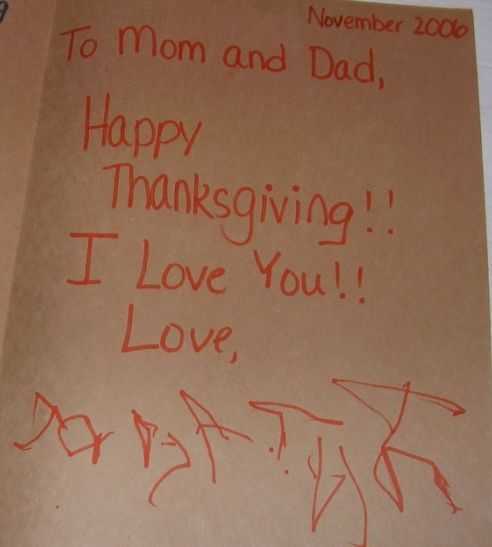 November 2006
To Mom and Dad,
Happy
Thanksgiving!!
I Love You!!
Love,